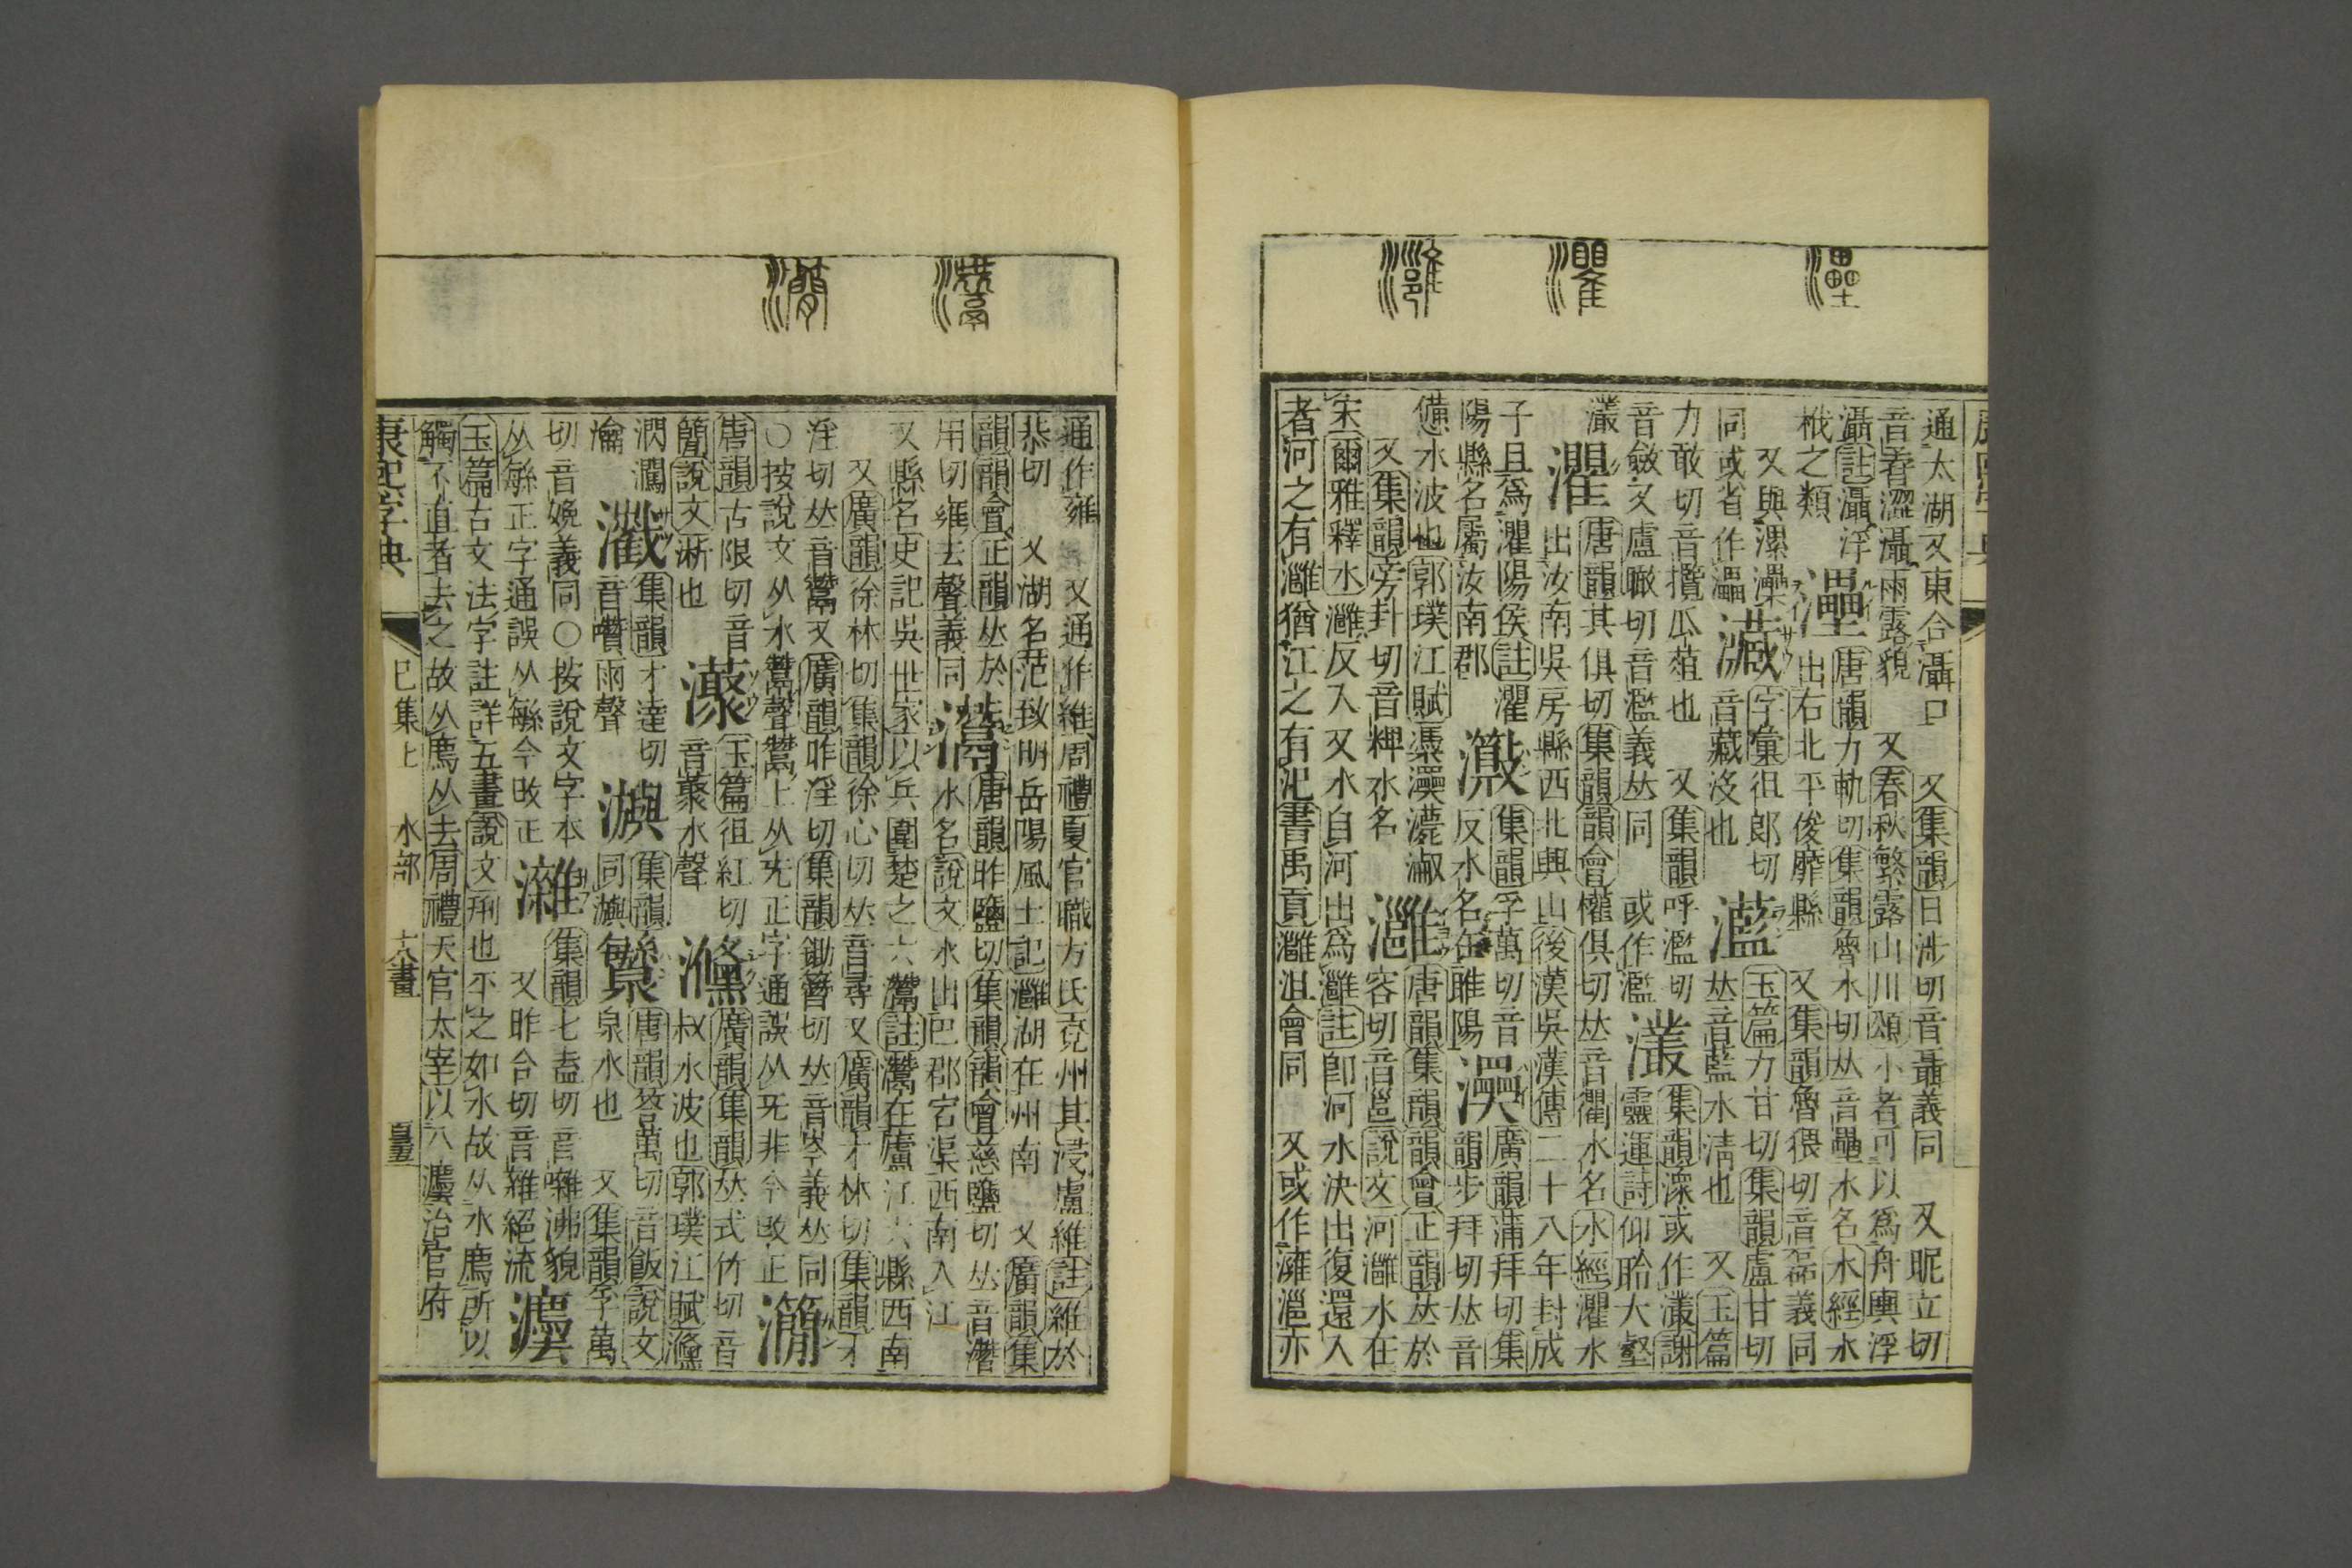 灅
灈
灉
通太湖又東合灄口 又集韻日涉切音聶義同 又昵立切
音孴澀灄雨露貌 又春秋繁露山川頌小者可以爲舟輿浮
灄註灄浮 灅 唐韻力軌切集韻魯水切𠀤音壘水名水經水
栰之類 出右北平俊靡縣 又集韻魯猥切音磊義同
又與漯㶟 字彙徂郎切 玉篇力甘切集韻盧甘切
同或省作灅 音藏沒也 灆 𠀤音藍水淸也 又玉篇
力敢切音攬瓜菹也 又集韻呼濫切 集韻澡或作灇謝
音斂又盧瞰切音濫義𠀤同 或作濫 灇 靈運詩仰聆大壑
灇 灈 唐韻其俱切集韻韻會權俱切𠀤音衢水名水經灈水
出汝南吳房縣西北興山後漢吳漢傳二十八年封成
子且爲灈陽侯註灈 集韻孚萬切音 廣韻蒲拜切集
陽縣名屬汝南郡 反水名在睢陽 韻步拜切𠀤音
憊水波也郭璞江賦㵗淑 灉 唐韻集韻韻會正韻𠀤於
又集韻旁卦切音粺水名 容切音邕說文河灉水在
宋爾雅釋水灉反入 又水自河出爲灉註卽河水決出復還入
者河之有灉猶江之有沱書禹貢灉沮會同 又或作澭㴩亦
灊
瀾
通作雍 又通作維周禮夏官職方氏兗州其浸盧維註維於
恭切 又湖名范致明岳陽風土記灉湖在州南 又廣韻集
韻韻會正韻𠀤於 灊 唐韻昨鹽切集韻韻會慈鹽切𠀤音潛
用切雍去聲義同 水名說文水出巴郡宕渠西南入江
又縣名史記吳世家以兵圍楚之六灊註灊在廬江六縣西南
又廣韻徐林切集韻徐心切𠀤音尋又廣韻才林切集韻才
淫切𠀤音鬵又廣韻昨淫切集韻鋤簪切𠀤音岑義𠀤同
○按說文从水鬵聲鬵上从兂正字通誤从旡非今改正
唐韻古限切音 玉篇徂紅切 廣韻集韻𠀤式竹切音
簡說文淅也 音藂水聲 叔水波也郭璞江賦
潤灍 集韻才達切 集韻 唐韻符萬切音飯說文
瀹 音囋雨聲 同 泉水也 又集韻孚萬
切音娩義同○按說文字本 集韻七盍切音囃沸貌
从緐正字通誤从緐今改正 又昨合切音雜絕流
玉篇古文法字註詳五畫說文𠛬也平之如水故从水廌所以
觸不直者去之故从廌从去周禮天官太宰以八灋治官府
康熙字典 巳集上 水部 十八畫